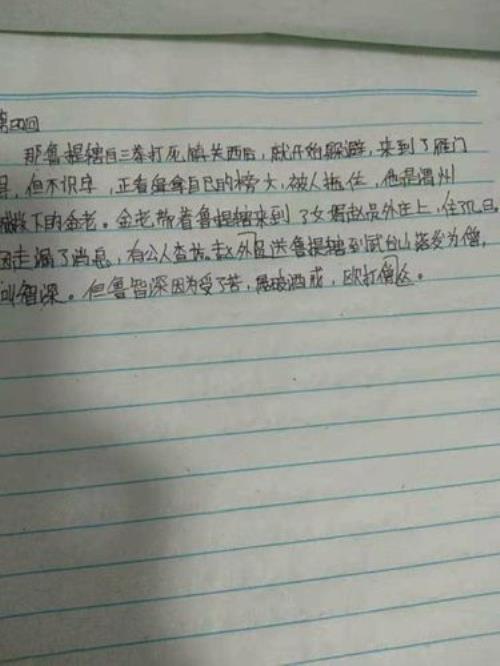 第四回
那鲁提辖自三拳打死镇关西后，就开始躲避，来到了雁门
县，但不识字，正看缉拿自已的榜文，被人抱住，他是渭州
下的金老。金老带着鲁提辖来到了女婿赵员外庄上，住了几日。
因走漏了消息，有公人查访。赵外员送鲁提辖到武台山落发为僧，
叫智深。但鲁智深因为受了苦，屡破酒戒，欧打僧众。